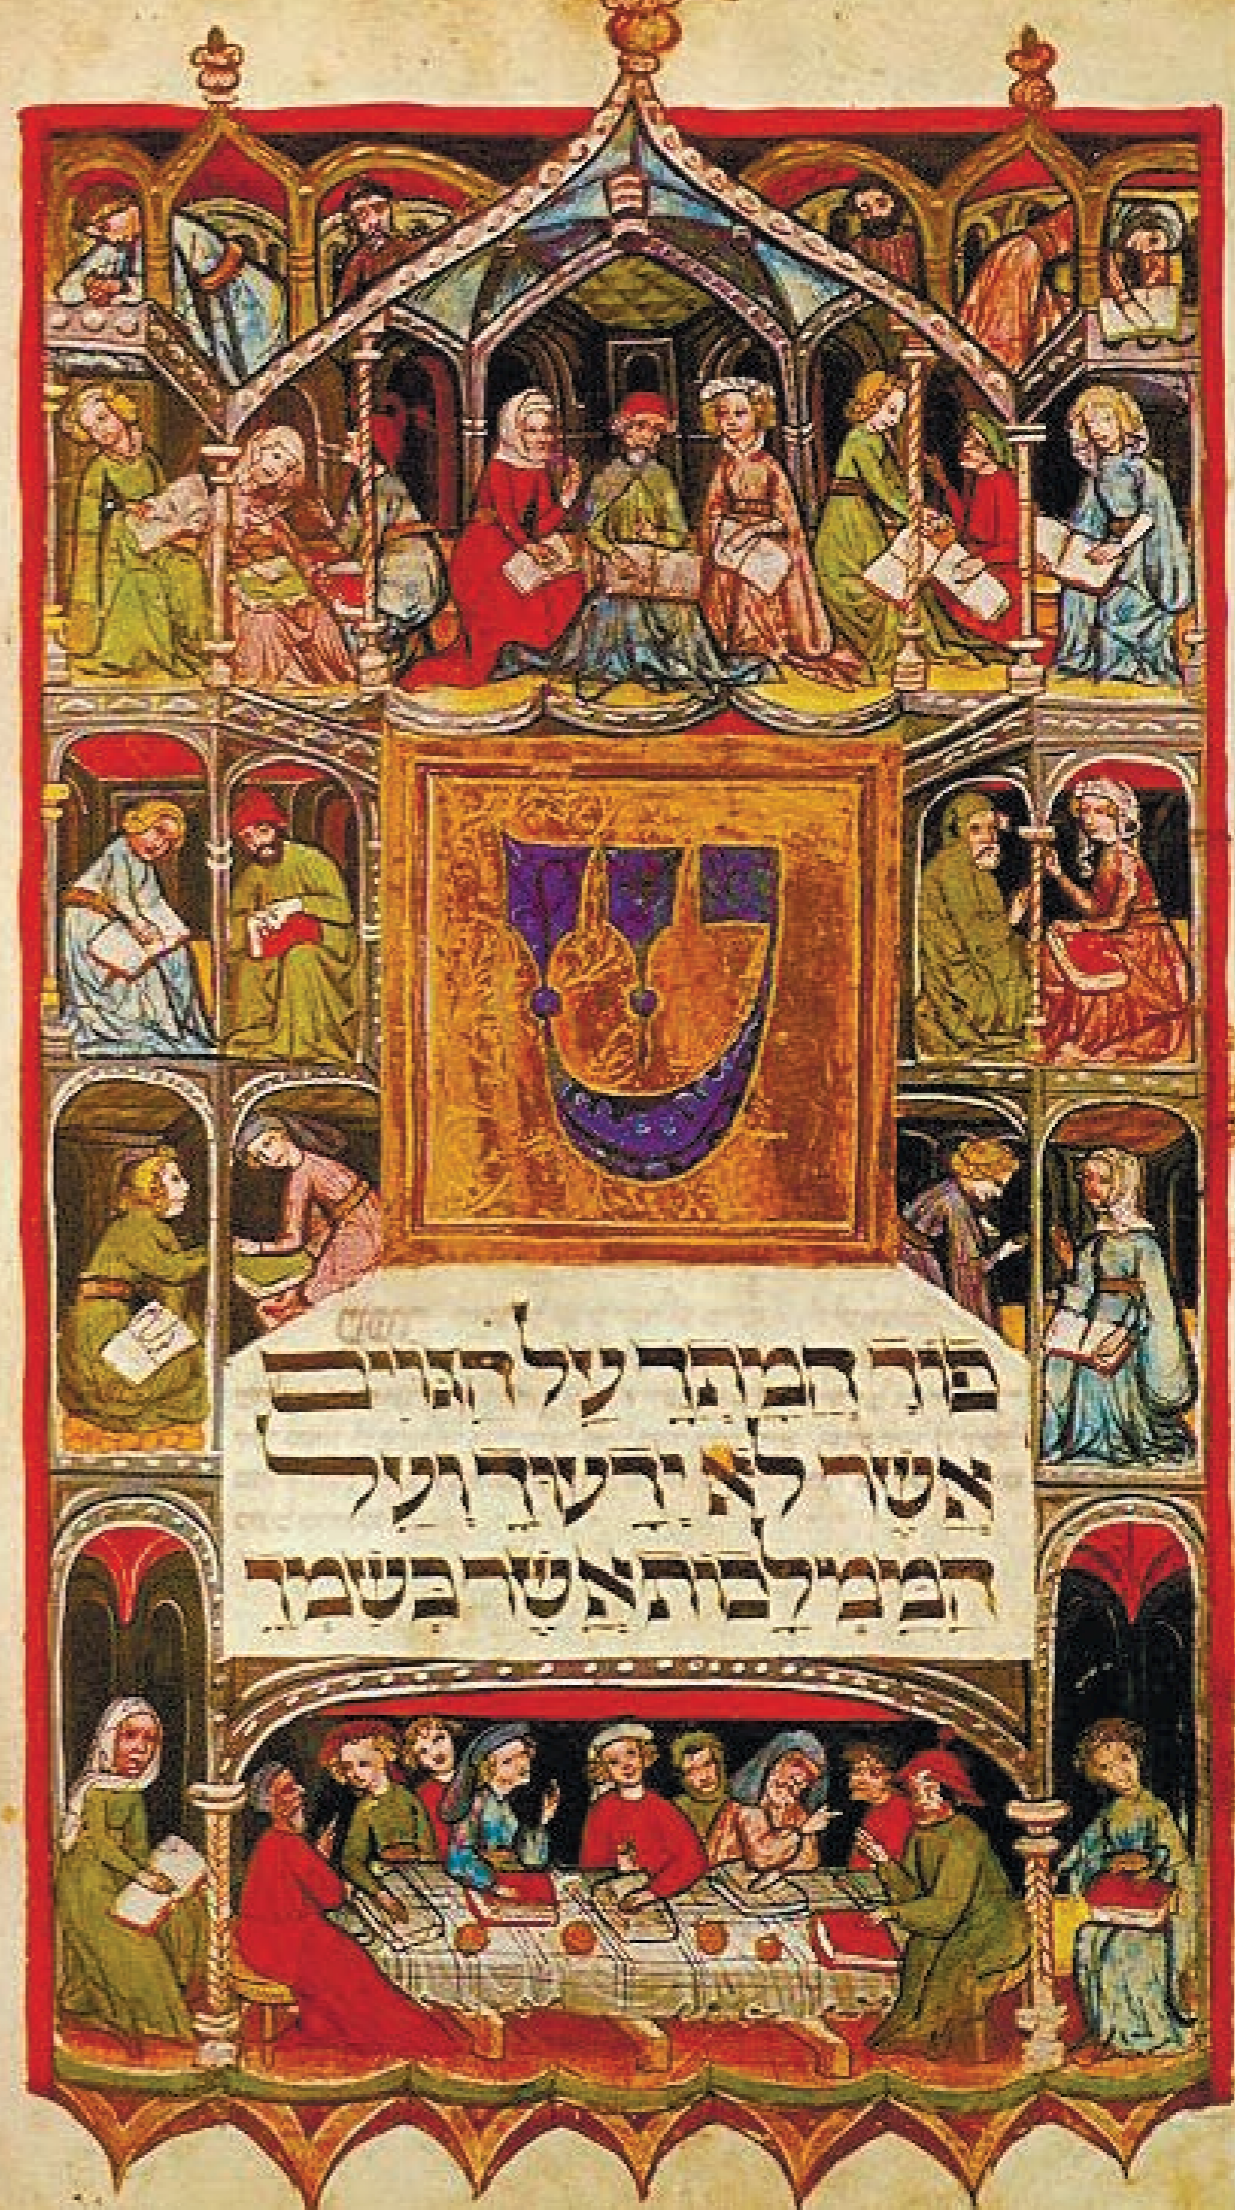 ש
פוֹךְ חֲמָתְךָ עַל הַגּוֹיִם
אֲשֶׁר לֹא יְדָעוּךָ וְעַל
הַמַּמְלָכוֹת אֲשֶׁר בְּשִׁמְךָ